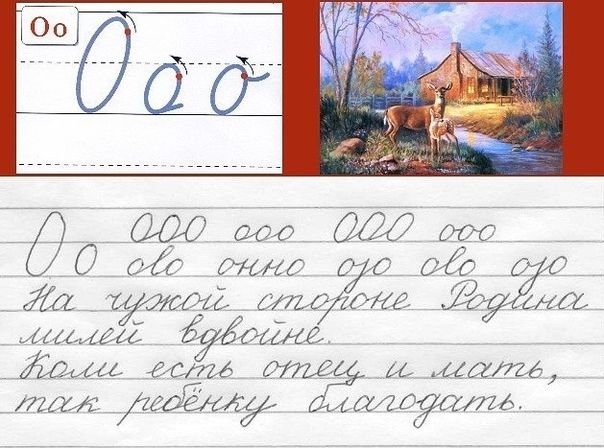 Оо
О о о
ООО ооо ООО ооо
О о ово онно ојо ово ојо
На чужой стороне Родина
милей вдвойне.
Коли есть отец и мать,
так ребёнку благодать.